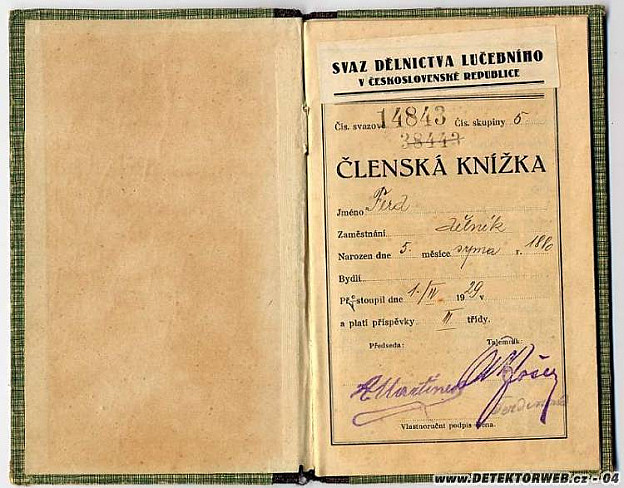 SVAZ DĚLNICTVA LUČEBNÍHO
V ČESKOSLOVENSKÉ REPUBLICE
Čís. svazové 14843 Čís. skupiny 5
38443
ČLENSKÁ KNÍŽKA
Jméno Ferd
Zaměstnání dělník
Narozen dne 5. měsíce r.
Bydlí
Přistoupil dne 1./IV 1929 v
a platí příspěvky III třídy.
Předseda: Tajemník:
Vlastnoruční podpis člena.
www.DETEKTORWEB.cz - 04